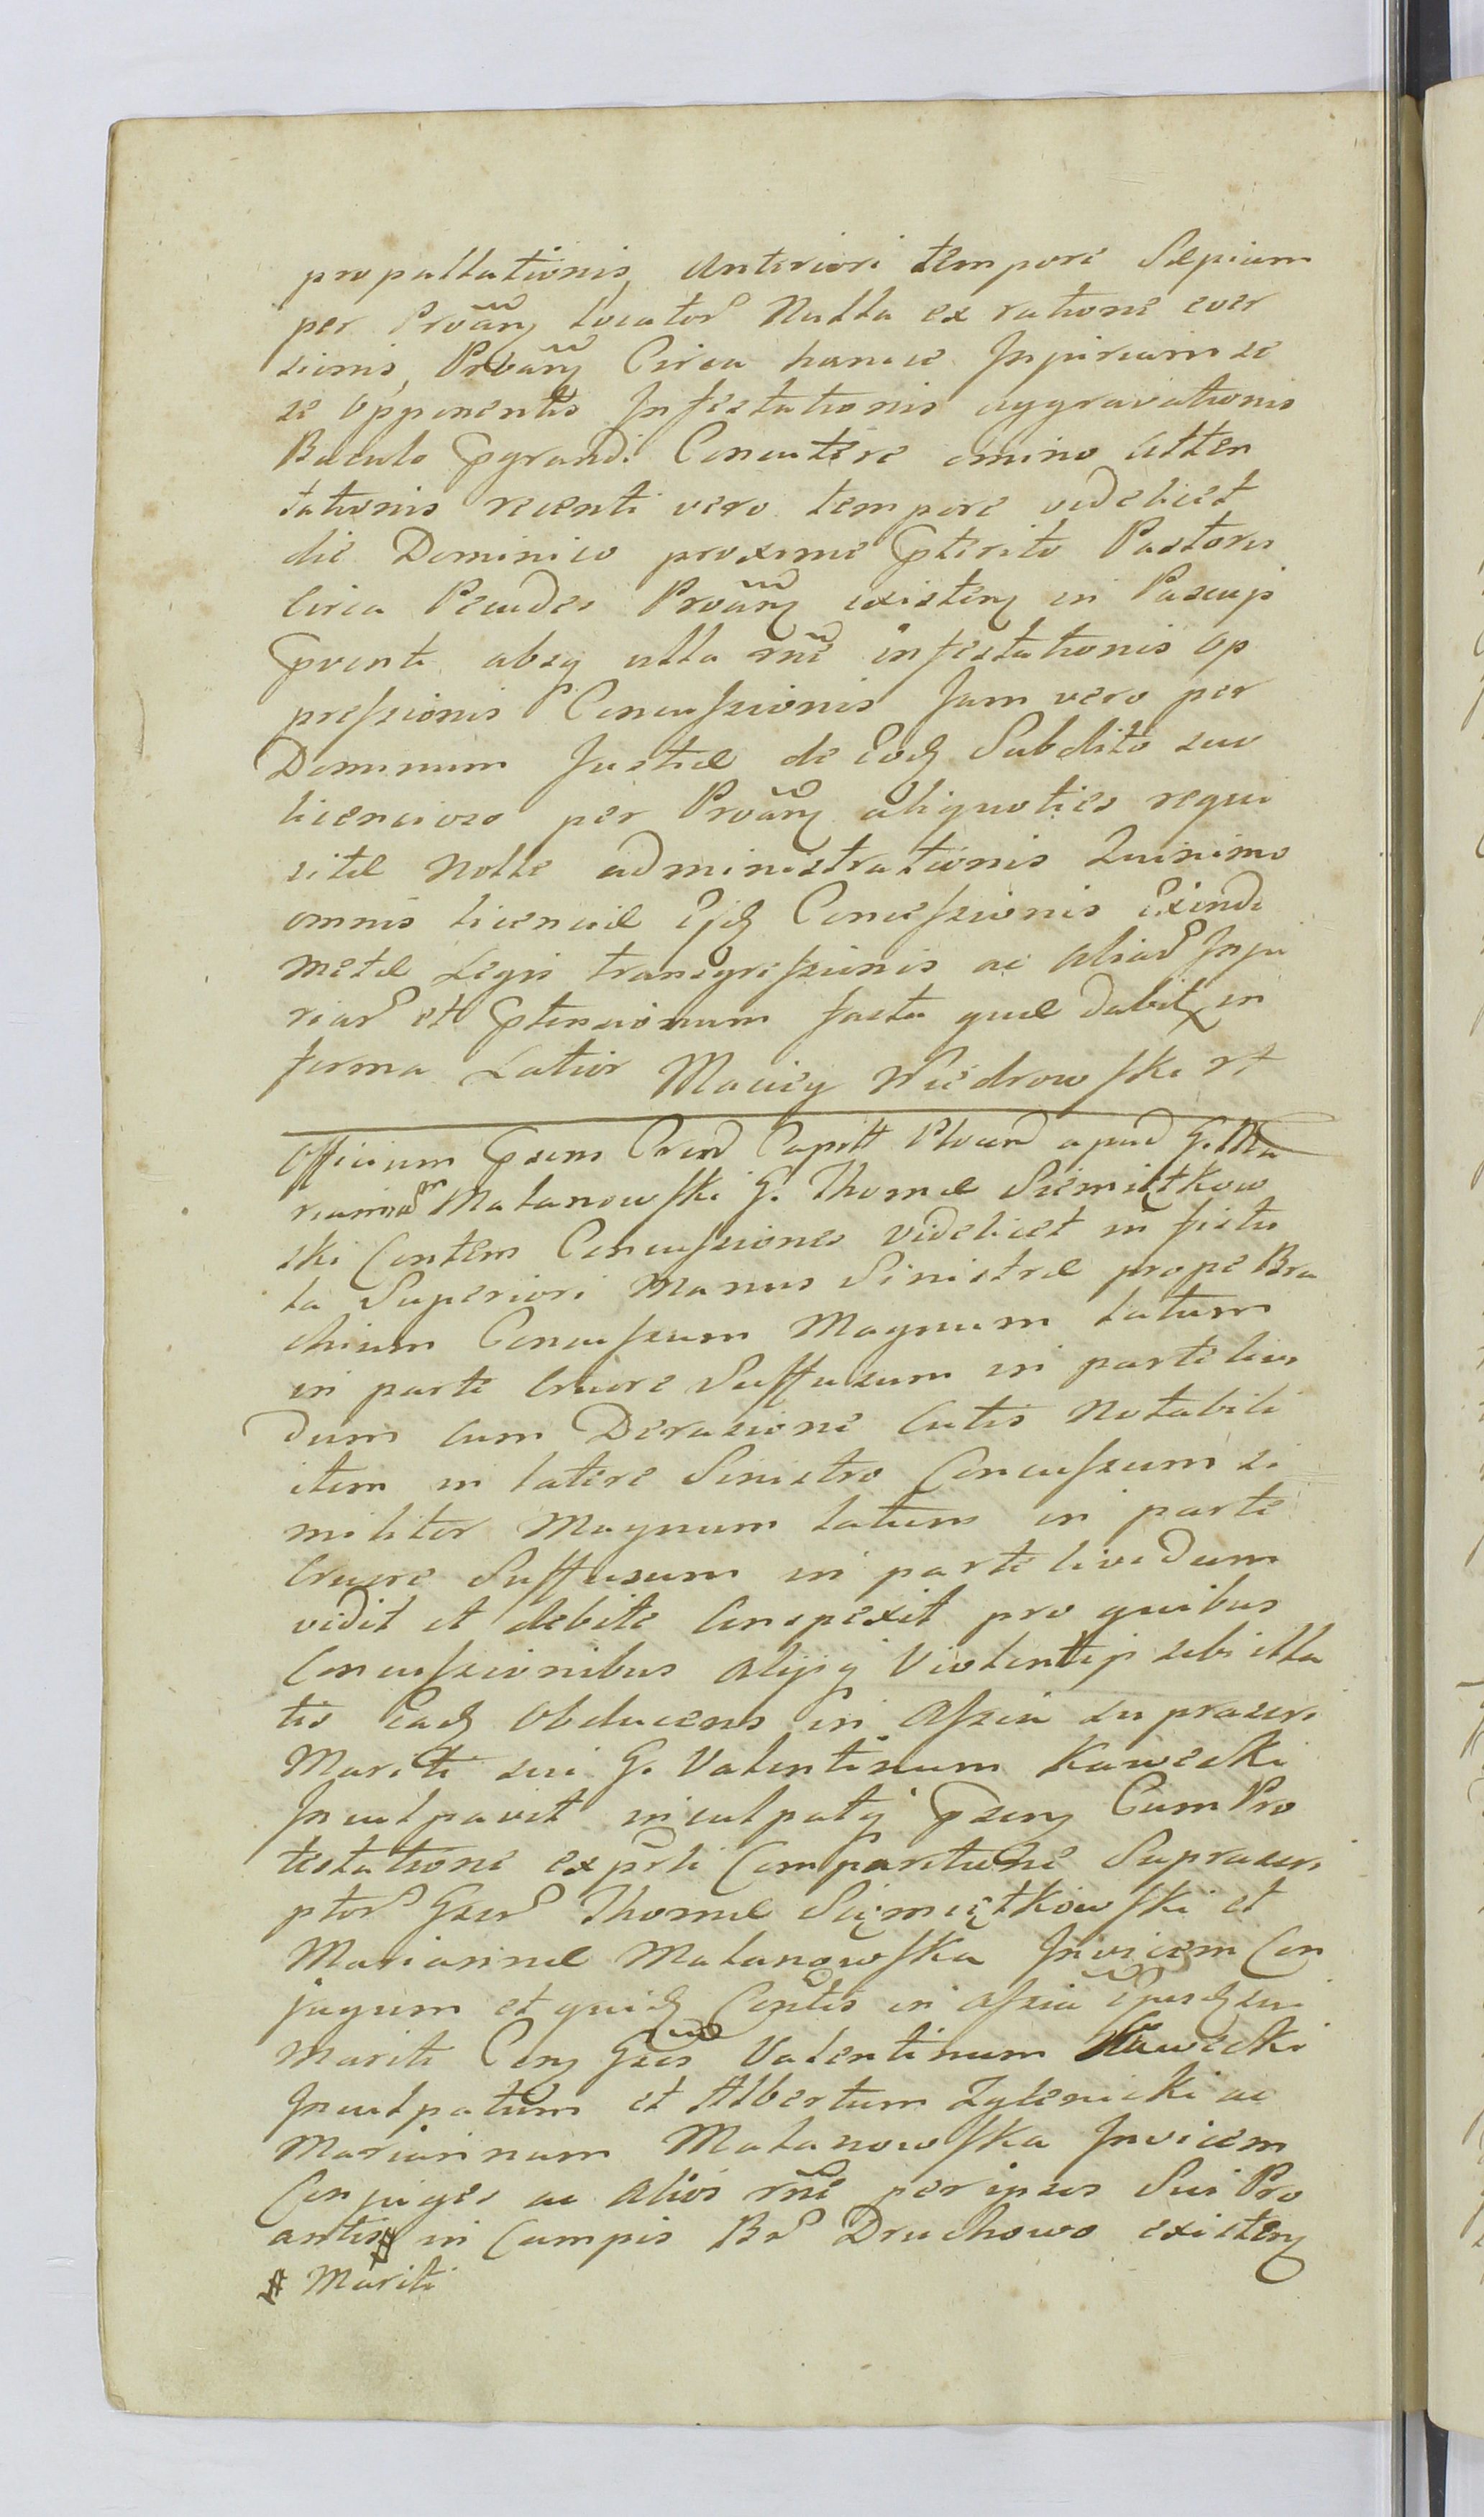 propallationis, anteriori tempore Sæpium
per Proãnŋ locator Nulla ex ratione ever
sionis, Proãnŋ Circa hance Injuriam se
se opponentis Infestationis aggravationis
Baculo pgrandi Concutere omino atten
tationis recenti vero tempore videlicet
die Dominico proxime pterito Pastoris
circa Pecudes Proãnŋ existenŋ in Pascuis
pventi absq ulla rñe infestationis op
pressionis Concussionis Jam vero per
Dominum Justiæ de Eodq Subdito suo
licencioso per Proãnŋ aliquoties requi
sitæ Nolle administrationis Quinimo
omnis licenciæ Ejdq Concessionis Exinde
metæ Legis transgressionis ac aliar Inju
riar et ptensionum facta quæ dabit in
forma Latior Maciey Wiedrowski rt
Officium psens Cren Capitt Plocen apud G. Ma
riannam Malanowski G. Thomæ Siemiątkow
ski Contem Concussiones videlicet in fistu
la Superiori Manus Sinistræ prope Bra
chium Concussum Magnum latum
in parte Cruore Suffusum in parte livi
dum cum Derasione Cutis Notabili
item in latere Sinistro Concussum si
militer Magnum latum in parte
Cruore Suffusum in parte lividum
vidit et debite Conspexit pro quibus
Concussionibus alijsq Violentijs sibi illa
tis Eadq Obducens in assia suprascri
Mariti sui G. Valentinum Kawecki
Inculpavit inculpatq psenŋ Cum Pro
testatione ex prti Comparitione Suprascri
ptor Gser Thomæ Siemiątkowski et
Mariannæ Malanowska Invicem Con
jugum et quidq Contis in assia ejusdq sui
Mariti Conŋ Gsos Valentinum Kawecki
Inculpatum et Albertum Zylenicki ac
Mariannam Malanowska Invicem
Conjuges ac alios rñe per ipsos Sui Pro
antis # in Campis Br Druchowo existenŋ
# Mariti